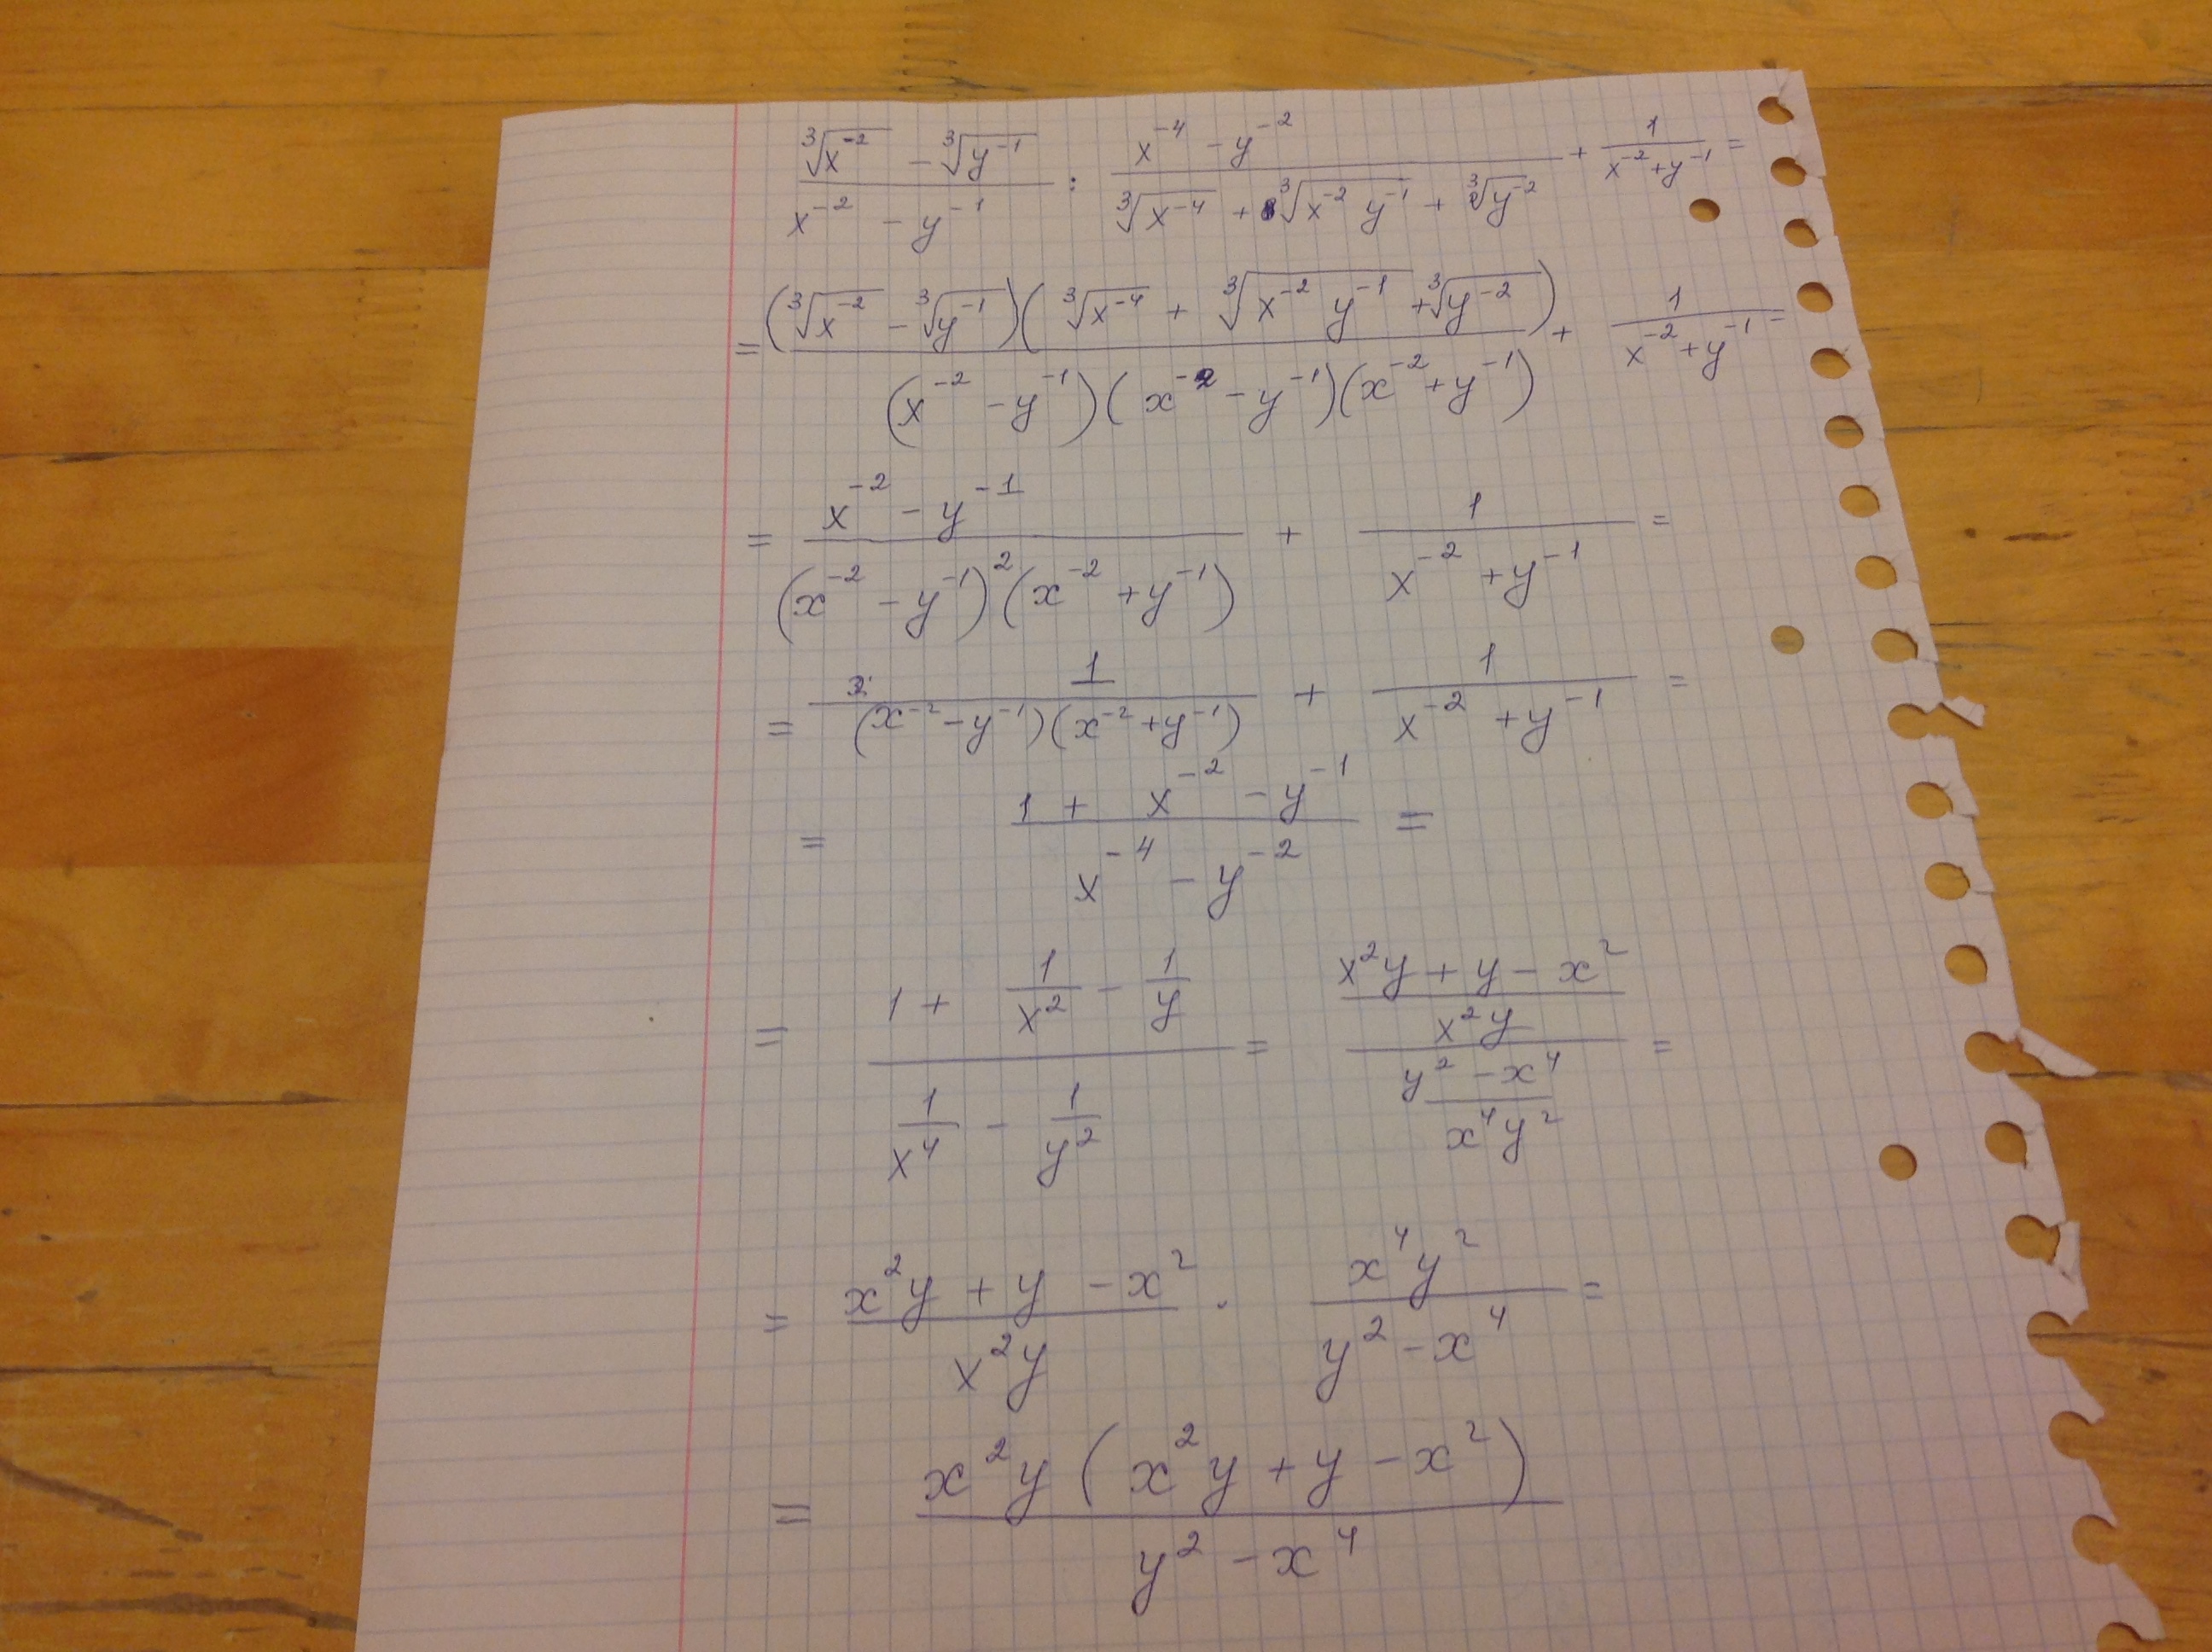 (∛(x⁻²) - ∛(y⁻¹))/(x⁻² - y⁻¹) : (x⁻⁴ - y⁻²)/(∛(x⁻⁴) + ∛(x⁻² y⁻¹) + ∛(y⁻²)) + 1/(x⁻² + y⁻¹) =
= ((∛(x⁻²) - ∛(y⁻¹))(∛(x⁻⁴) + ∛(x⁻² y⁻¹) + ∛(y⁻²)))/((x⁻² - y⁻¹)(x⁻² - y⁻¹)(x⁻² + y⁻¹)) + 1/(x⁻² + y⁻¹) =
= (x⁻² - y⁻¹)/((x⁻² - y⁻¹)²(x⁻² + y⁻¹)) + 1/(x⁻² + y⁻¹) =
= 1/((x⁻² - y⁻¹)(x⁻² + y⁻¹)) + 1/(x⁻² + y⁻¹) =
= (1 + x⁻² - y⁻¹)/(x⁻⁴ - y⁻²) =
= (1 + 1/x² - 1/y)/(1/x⁴ - 1/y²) = ((x²y + y - x²)/(x²y))/((y² - x⁴)/(x⁴y²)) =
= (x²y + y - x²)/(x²y) · (x⁴y²)/(y² - x⁴) =
= (x²y(x²y + y - x²))/(y² - x⁴)